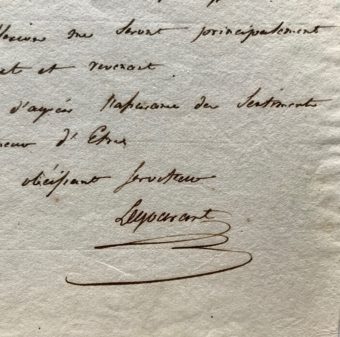 me seront principalement
et et revenant
d'agréer l'assurance des Sentiments
neur d'Etre
obéissant serviteur
Legouarant